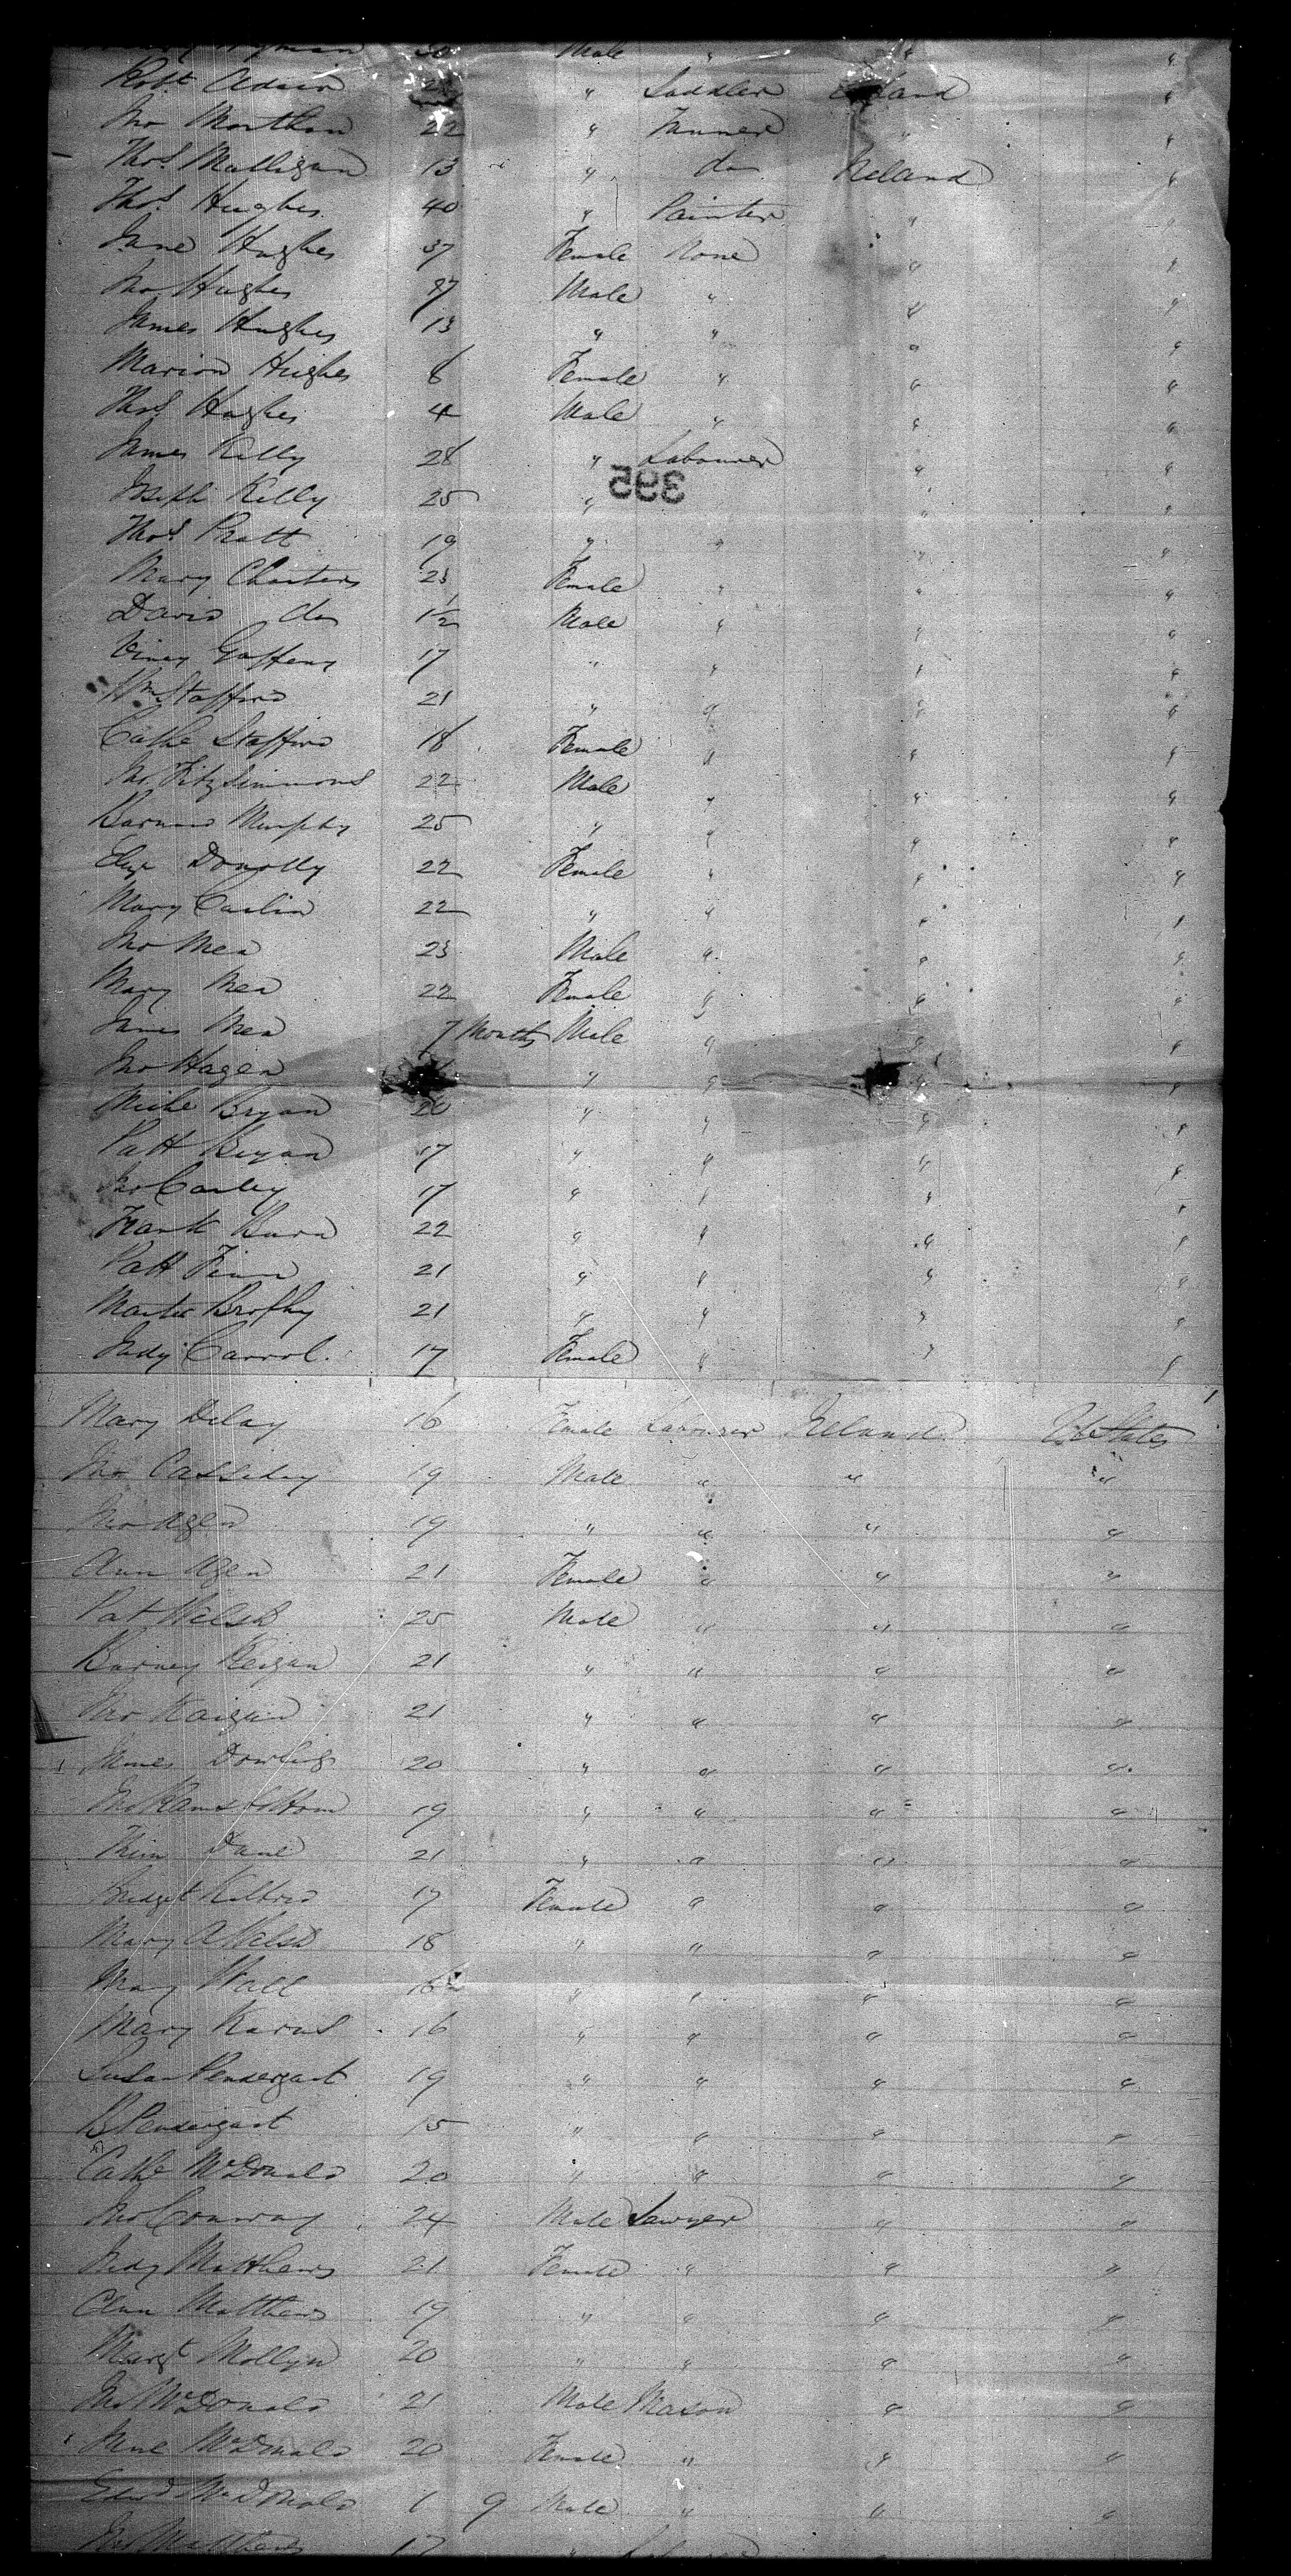 Male " " "
Robt Adair " Saddler "
Jno 22 " Tanner " "
Thos Mulligan 13 " do Ireland "
Thos Hughes 40 " Painter " "
Jane Hughes 37 Female None " "
Jno Hughes Male " " "
James Hughes 13 " " " "
Marion Hughes 8 Female " " "
Thos Hughes 4 Male " " "
James Kelly 28 " Labourer " "
395
Joseph Kelly 25 " " "
Thos Pratt 19 " " " "
Mary Charters 23 Female " " "
David do 1½ Male " " "
Gaffeny 17 " " " "
Wm Stafford 21 " " " "
Cathe Stafford 18 Female " " "
Jno Fitzsimmons 22 Male " " "
Barnard Murphy 25 " " " "
Eliza Donolly 22 Female " " "
Mary Carlin 22 " " " "
Jno Mea 23 Male " " "
Mary Mea 22 Female " " "
James Mea 7 Months Male " " "
Jno Hagen " " " "
Miche Bryan 20 " " " "
Patt Bryan 17 " " " "
Jno Carley 17 " " " "
Frank Burn 22 " " " "
Patt Finn 21 " " " "
Martin Brophy 21 " " " "
Judy Carrol. 17 Female " " "
Mary Delay 16 Female Labourer Ireland U States
Jno Cassiday 19 Male " " "
Jno Agen 19 " " " "
Ann Agen 21 Female " " "
Pat Walsh 25 Male " " "
Barney Keigan 21 " " " "
Jno Kaigan 21 " " " "
James Dowling 20 " " " "
Jno Ramsbottom 19 " " " "
Thim Dane 21 " " " "
Bridget 17 Female " " "
Mary A Walsh 18 " " " "
Mary Wall 16 " " " "
Mary Karns 16 " " " "
Susan Pendergast 19 " " " "
B Pendergast 15 " " " "
Cathe McDonald 20 " " " "
Jno Conway 24 Male Sawyer " "
Judy Matthews 21 Female " " "
Ann Matthews 19 " " " "
Margt Mollyn 20 " " " "
Jno McDonald 21 Male Mason " "
Jane McDonald 20 Female " " "
Edwd McDonald 1 9 Male " " "
Jno Matthews 17 " Labourer " "